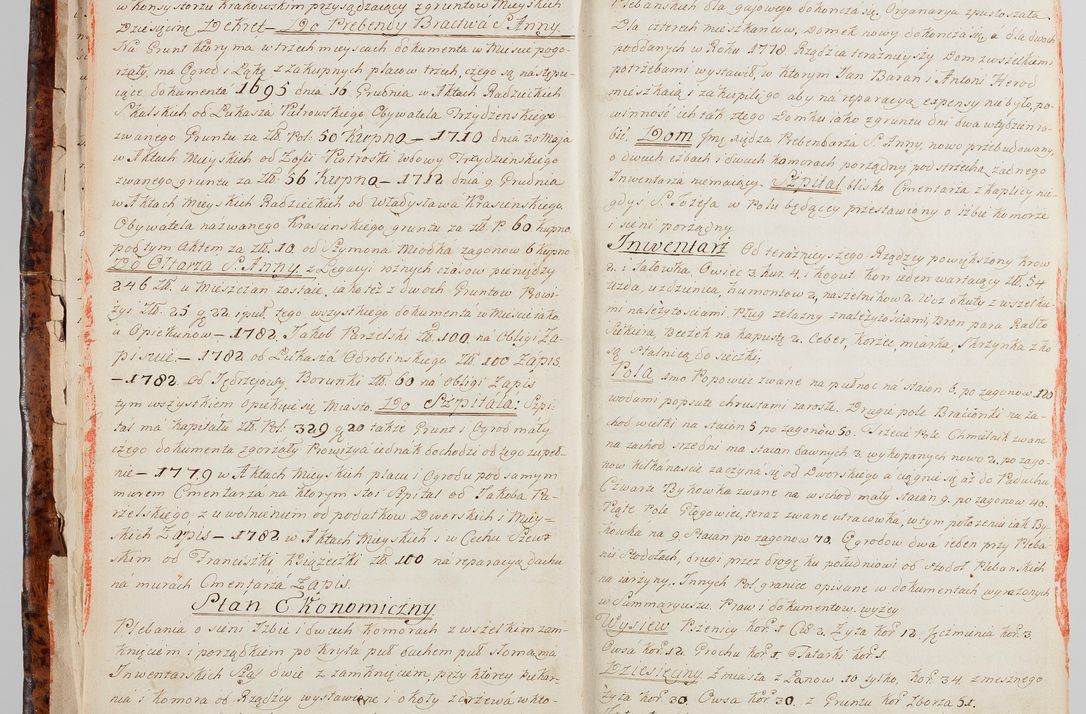 w Konsystorzu Krakowskim przysądzaiący z gruntow Mieyskich
Dziesięcinę Dekret — Do Prebendy Bractwa S. Anny.
Na Grunt który ma w trzech mieyscach dokumenta w Mieście pogo-
rzały, ma Ogrod i Łąkę z zakupnych placow trzech, czego są następu-
iące dokumenta 1695 dnia 16 Grudnia w Aktach Radzieckich
Skalskich od Łukasza Piątrowskiego Obywatela Przydzenskiego
zwanego Gruntu za Złł. Pol: 50 Kupno — 1710 dnia 30 Maja
w Aktach Mieyskich od Zofii Piotroski wdowy Przydzenskiego
zwanego gruntu za Złł. 56 Kupno — 1712 dnia 9 Grudnia
w Aktach Mieyskich Radzieckich od Władysława Krasienskiego
Obywatela nazwanego Krasienskiego gruntu za Złł P. 60 kupno
pod tym Aktem za Złł. 10 od Szymona Miodka zagonow 6 kupno
Do Ołtarza S. Anny z Legacyi rożnych czasow pieniędzy
246 Złł. u Mieszczan zostaie, iako też z dwoch Gruntow Prowi-
zyi Złł. 25 g 22 1 puł. tego wszystkiego dokumenta w Mieście iako
u Opiekunow — 1782. Jakob Parzelski Złł. 100, na Obligi Za-
pisuie — 1782 od Łukasza Odrobinskiego Złł. 100 Zapis
— 1782 od Jędrzejowy Borunki Złł. 60 na Obligi Zapis
tym wszystkiem opiekuie się Miasto. Do Szpitala: Szpi-
tal ma Kapitału Złł. Pol: 329 g 20 także Grunt i Ogrod mały
czego dokumenta zgorzały Prowizya iednak dochodzi od tego zupeł-
nie — 1779 w Aktach Mieyskich placu i Ogrodu pod samym
murem Cmentarza na którym stoi Szpital od Jakoba Pa-
rzelskiego z uwolnieniem od podatkow Dworskich i Miey-
skich Zapis — 1782 w Aktach Mieyskich i w Cechu Szew-
skim od Franciszki Książeczki Złł. 100 na reparacyą dachu
na murach Cmentarza Zapis.
Stan Ekonomiczny
Plebania o sieni Izbie i dwuch Komorach z wszelkim zam-
knięciem i porządkiem po kryta puł dachem puł słomą ma
Inwentarskich Stąl dwie z zamknięciem, przy ktorey Piekar-
nia i Komora od Rządcy wystawione i okoły zarzewa wkło-
Plebanskich dla gajowego dokończa się Organarya spustoszała
Dla czterech mieszkancow, Domek nowy dokończa się, a dla dwoch
poddanych w Roku 1778 Rządzia teraźnieyszy Dom z wszelkiemi
potrzebami wystawił, w ktorym Jan Baran i Antoni Herod
mieszkaią i zakupili go aby na reparacyą expensy nie było, po-
winność ich tak z tego Domku iako z gruntu dni dwa w tydzien ro-
bić. Dom Jmę Xiędza Prebendarza S. Anny nowo przebudowany,
o dwuch izbach i dwuch Komorach porządny pod strzechą żadnego
Inwentarza niemaiący. Szpital blisko Cmentarza z kaplicy nie-
gdys S. Jozefa w Polu będącey przestawiony o izbie komorze
i sieni porządny
Inwentarż Od teraźnieyszego Rządzcy powiększony krow
2. 1 Jałowka. Owiec 3. kur. 4. i kogut. kon ieden wartuiący Złł. 54
Uzda, uzdzienica, humontow 2, naszelnikow 2. Woz okuty z wszelkie-
mi należytościami. Pług żelazny z należytościami, Bron para Radło
Siekiera, Beczek na kapustę 2. Ceber, korzec, miarka, Skrzynka z ko-
są stalnicą do sieczki,
Pola 1mo Popowiec zwane na pułnoc na staion 6. po zagonow 120
wodami popsute chrustami zarosłe. Drugie pole Braciánki na za-
chod wielki na staion 5 po zagonow 50. Trzecie Pole Chmielnik zwane
na zachod srzedni ma staian dawnych 3. wykopanych nowo 2. po zago-
now kilkanaście zaczyna się od Dworskiego a ciągnie się aż do Paduchu
Czwarte Bykowka zwane na wschod mały staian 9. po zagonow 40.
Piąte Pole Głogowiec, teraz zwane utracowka, w tym położeniu iak By-
kowka na 9. Staian po zagonow 70. Ogrodow dwa ieden przy Pleba-
nii Stodołach, drugi przez drogę ku południowi od stodoł Plebanskich
na iarzyny. Innych Pol granice opisane w dokumentach wyrażonych
w Summaryuszu Praw i dokumentow. wyżey
Wysiew Pszenicy Kor. 1 Ćw 2. Żyta Kor. 12. Jęczmienia Kor. 3
Owsa Kor. 12. Grochu Kor. 1. Tatarki Kor. 1.
Dziesięciny z miasta z Łanow 10 tylko, Kor. 34. z mesznego
żyta Kor. 30. Owsa Kor. 30. z Gruntu Kor. Zborza 51.